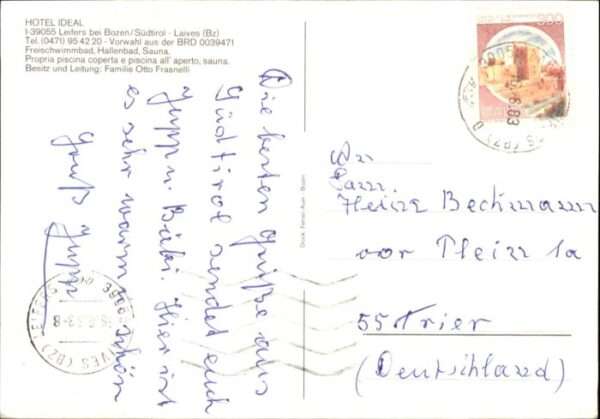 HOTEL IDEAL
I-39055 Leifers bei Bozen/Südtirol - Laives (Bz)
Tel. (0471) 95 42 20 - Vorwahl aus der BRD 0039471
Freischwimmbad, Hallenbad, Sauna.
Propria piscina coperta e piscina all' aperto, sauna.
Besitz und Leitung: Familie Otto Frasnelli
Die besten Grüße aus
Südtirol sendet euch
Jupp u. Bäbi. Hier ist
es sehr warm schön
Gruß Jupp
An
Fam.
Heinz Bechmann
vor Plein 1a
55 Trier
(Deutschland)